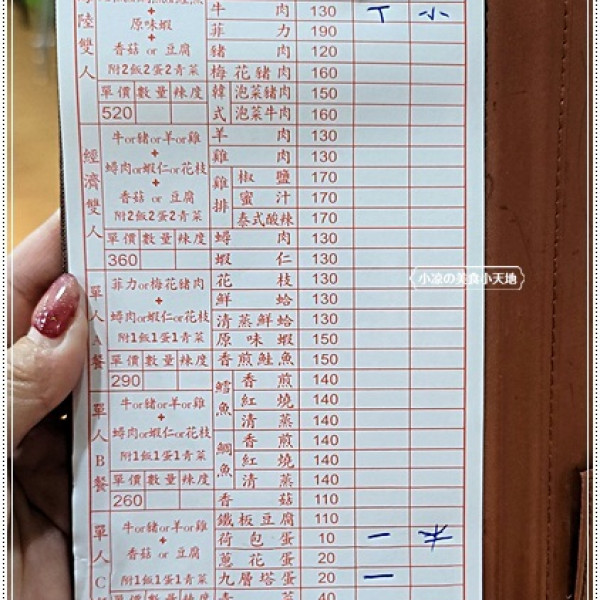 海陸雙人
原味蝦
+
香菇 or 豆腐
附2飯2蛋2青菜
單價 數量 辣度
520
經濟雙人
牛or豬or羊or雞
+
蟳肉or蝦仁or花枝
+
香菇 or 豆腐
附2飯2蛋2青菜
單價 數量 辣度
360
單人A餐
菲力or梅花豬肉
+
蟳肉or蝦仁or花枝
附1飯1蛋1青菜
單價 數量 辣度
290
單人B餐
牛or豬or羊or雞
+
蟳肉or蝦仁or花枝
附1飯1蛋1青菜
單價 數量 辣度
260
單人C
牛or豬or羊or雞
+
香菇 or 豆腐
附1飯1蛋1青菜
牛肉 130 丅 小
菲力 190
豬肉 120
梅花豬肉 160
韓式 泡菜豬肉 150
泡菜牛肉 160
羊肉 130
雞肉 130
雞排 椒鹽 170
蜜汁 170
泰式酸辣 170
蟳肉 130
蝦仁 130
花枝 130
鮮蛤 130
清蒸鮮蛤 130
原味蝦 150
香煎鮭魚 150
鱈魚 香煎 140
紅燒 140
清蒸 140
鯛魚 香煎 140
紅燒 140
清蒸 140
香菇 110
鐵板豆腐 110
荷包蛋 10 一 半
蔥花蛋 20
九層塔蛋 20 一
40
小凉の美食小天地